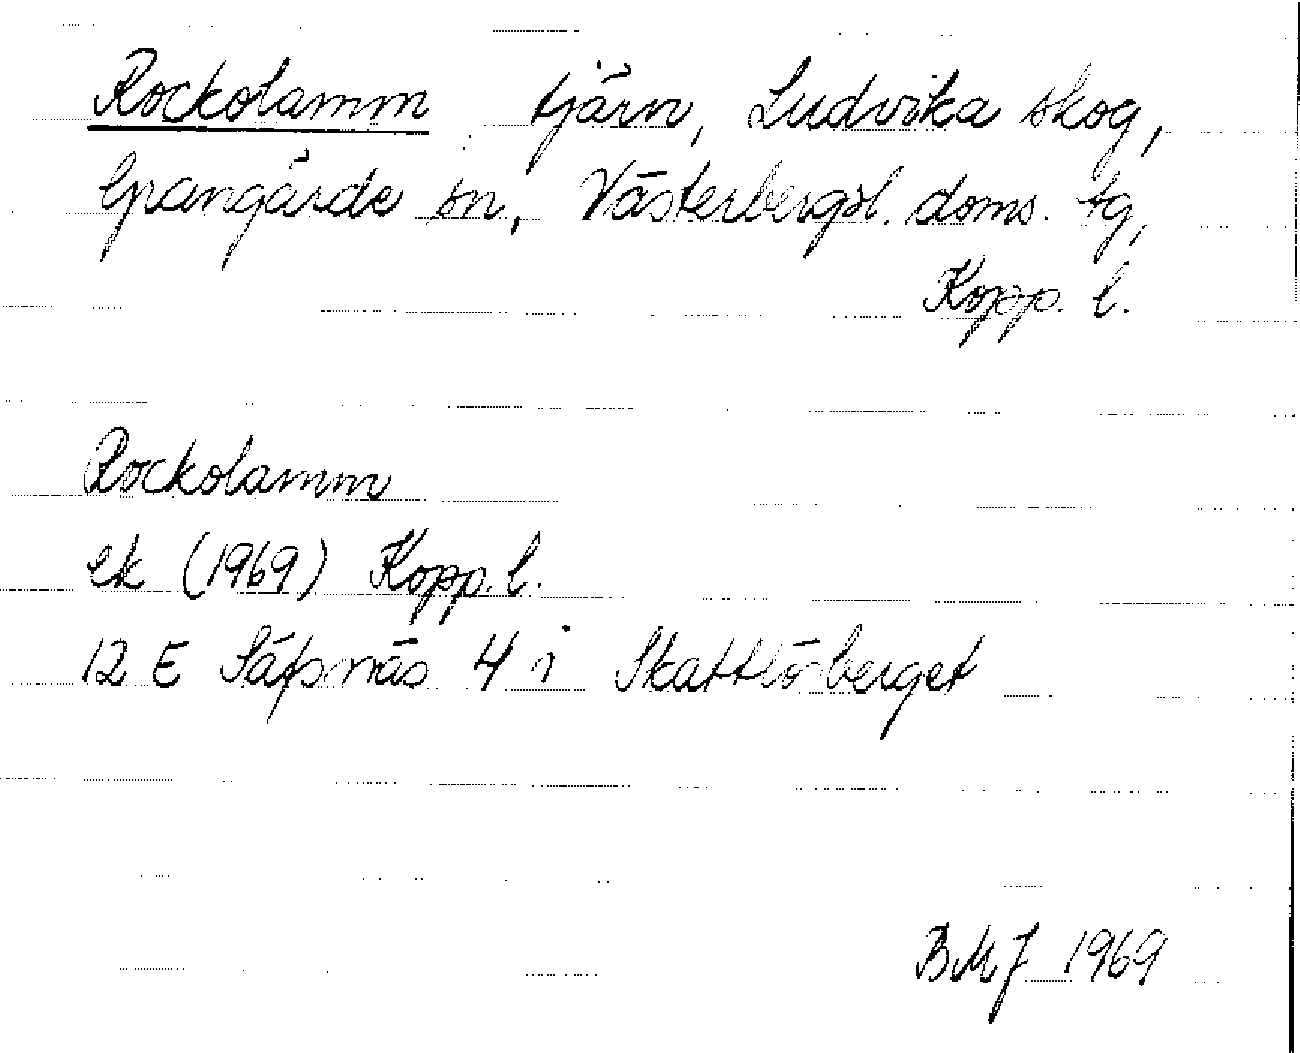 Rockolamm tjärn, Ludvika skog,
Grangärde sn, Västerbergsl. doms. tg,
Kopp. l.
Rockolamm
ek (1969) Kopp. l.
12 E Säfsnäs 4 i Skattlösberget
BMJ 1969